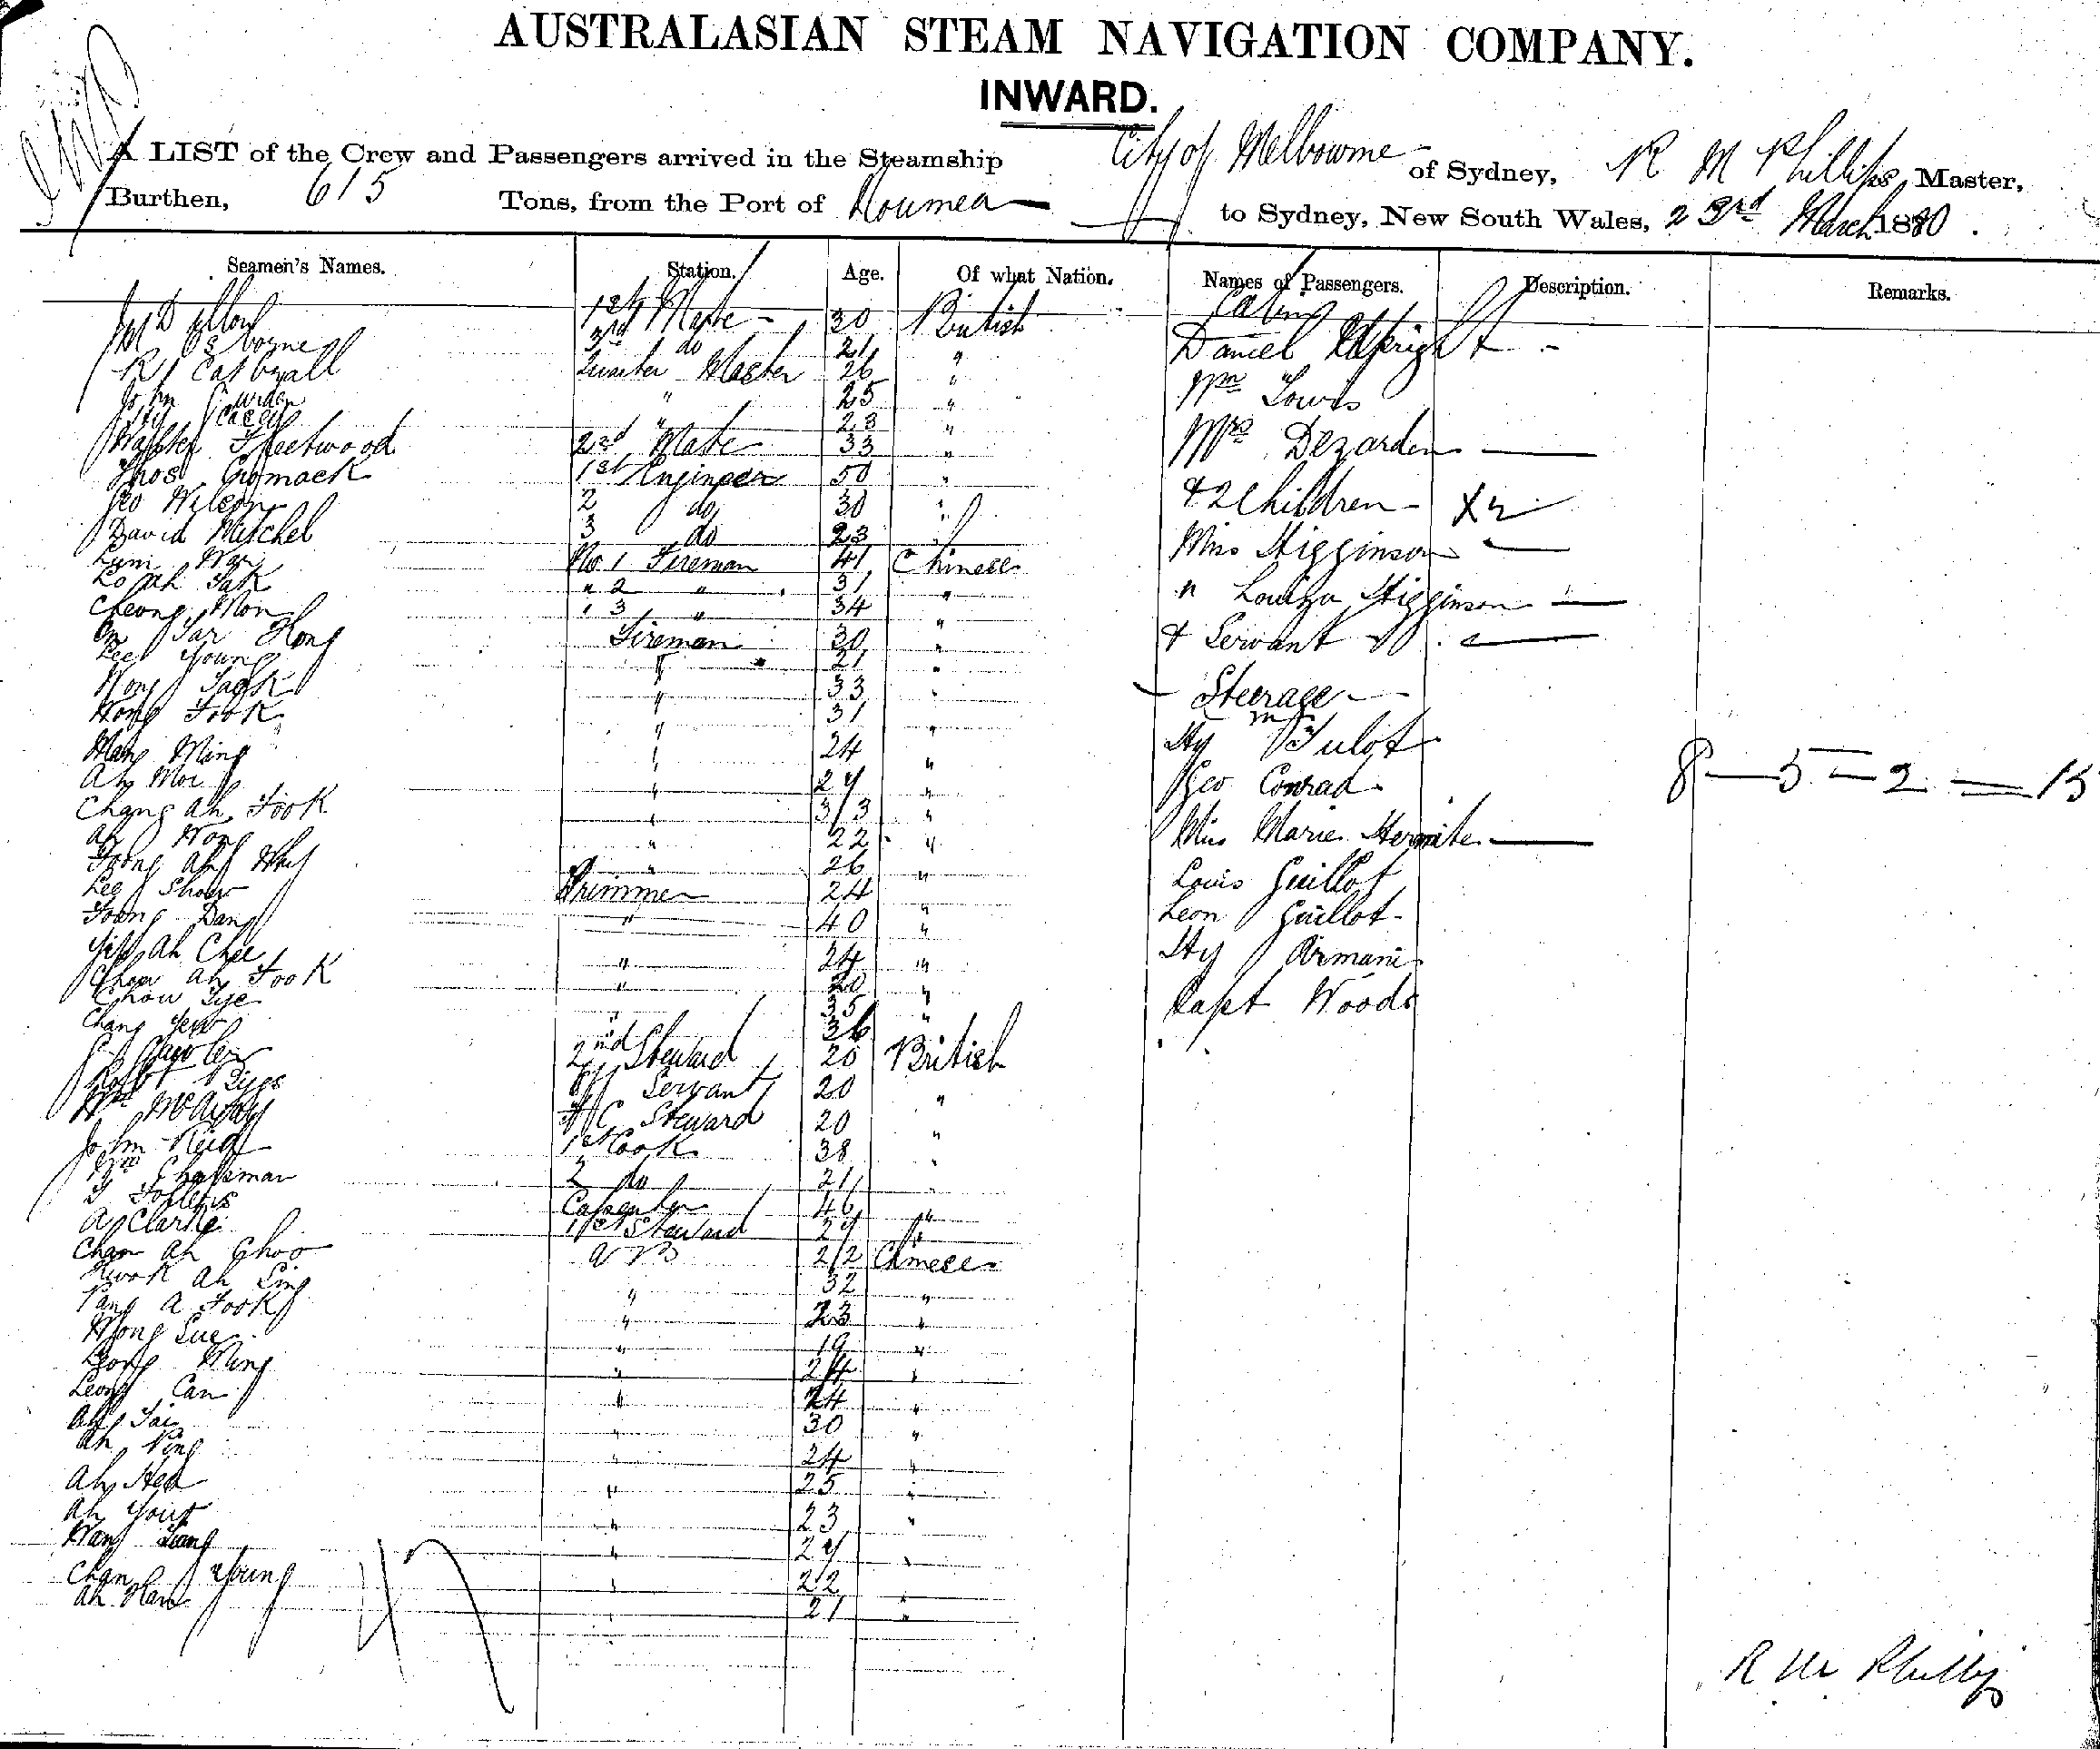 AUSTRALASIAN STEAM NAVIGATION COMPANY.
INWARD.
A LIST of the Crew and Passengers arrived in the Steamship City of Melbourne of Sydney, R M Phillips Master,
Burthen, 615 Tons, from the Port of Noumea to Sydney, New South Wales, 23rd March 1880.
Seamen's Names. Station. Age. Of what Nation. Names of Passengers. Description. Remarks.
Cabin
1st Mate 30 British
Osborne 3rd do 21 "
Daniel
R Quarter Master 26 "
John " 25 "
Wm
Hy Casey " 23 "
Walter Fleetwood 2nd Mate 33 "
Mrs Dezarden
Thos Cromack 1st Engineer 50 "
Geo Wilson 2 do 30 "
& 2 Children
David Mitchel 3 do 23 "
Miss Higginson
No 1 Fireman 41 Chinese
Lo Ah " 2 " 31 "
" Louisa Higginson
Cheong Mon " 3 " 34 "
Tar Hong Fireman 30 "
& Servant
Lee Young " 21 "
Wong " 33 "
Steerage
Wong Fook " 31 "
Hy
Ming " 24 "
Geo Conrad
8 — 5 — 2 = 15
Ah Moi " 27 "
Chang Ah Fook " 33 "
Miss Marie Hermite
Ah Wong " 22 "
Foong Ah " 26 "
Louis Guillot
Lee Show Trimmer 24 "
Leon Guillot
Foong Dang " 40 "
Ah Chee " 24 "
Hy Armani
Chow Ah Fook " 20 "
Capt Woods
Chow Tye " 35 "
Chang Yew 36
2nd Steward 20 British
Robt Servant 20 "
Wm Steward 20 "
John Reid 1st Cook 38 "
Wm Chapman 2 do 21 "
Carpenter 46 "
A Clarke 1st Steward 27 "
Chan Ah Choo A B 22 Chinese
Kwok Ah Sing " 32 "
A Fook " 23 "
Wong Sue " 19 "
Leong Ming " 24 "
Leong Can " 24 "
Ah Tai " 30 "
Ah Ping " 24 "
Ah Hea " 25 "
Ah " 23 "
" 27 "
Chan Young " 22 "
Ah Han " 21 "
47
R M Phillips